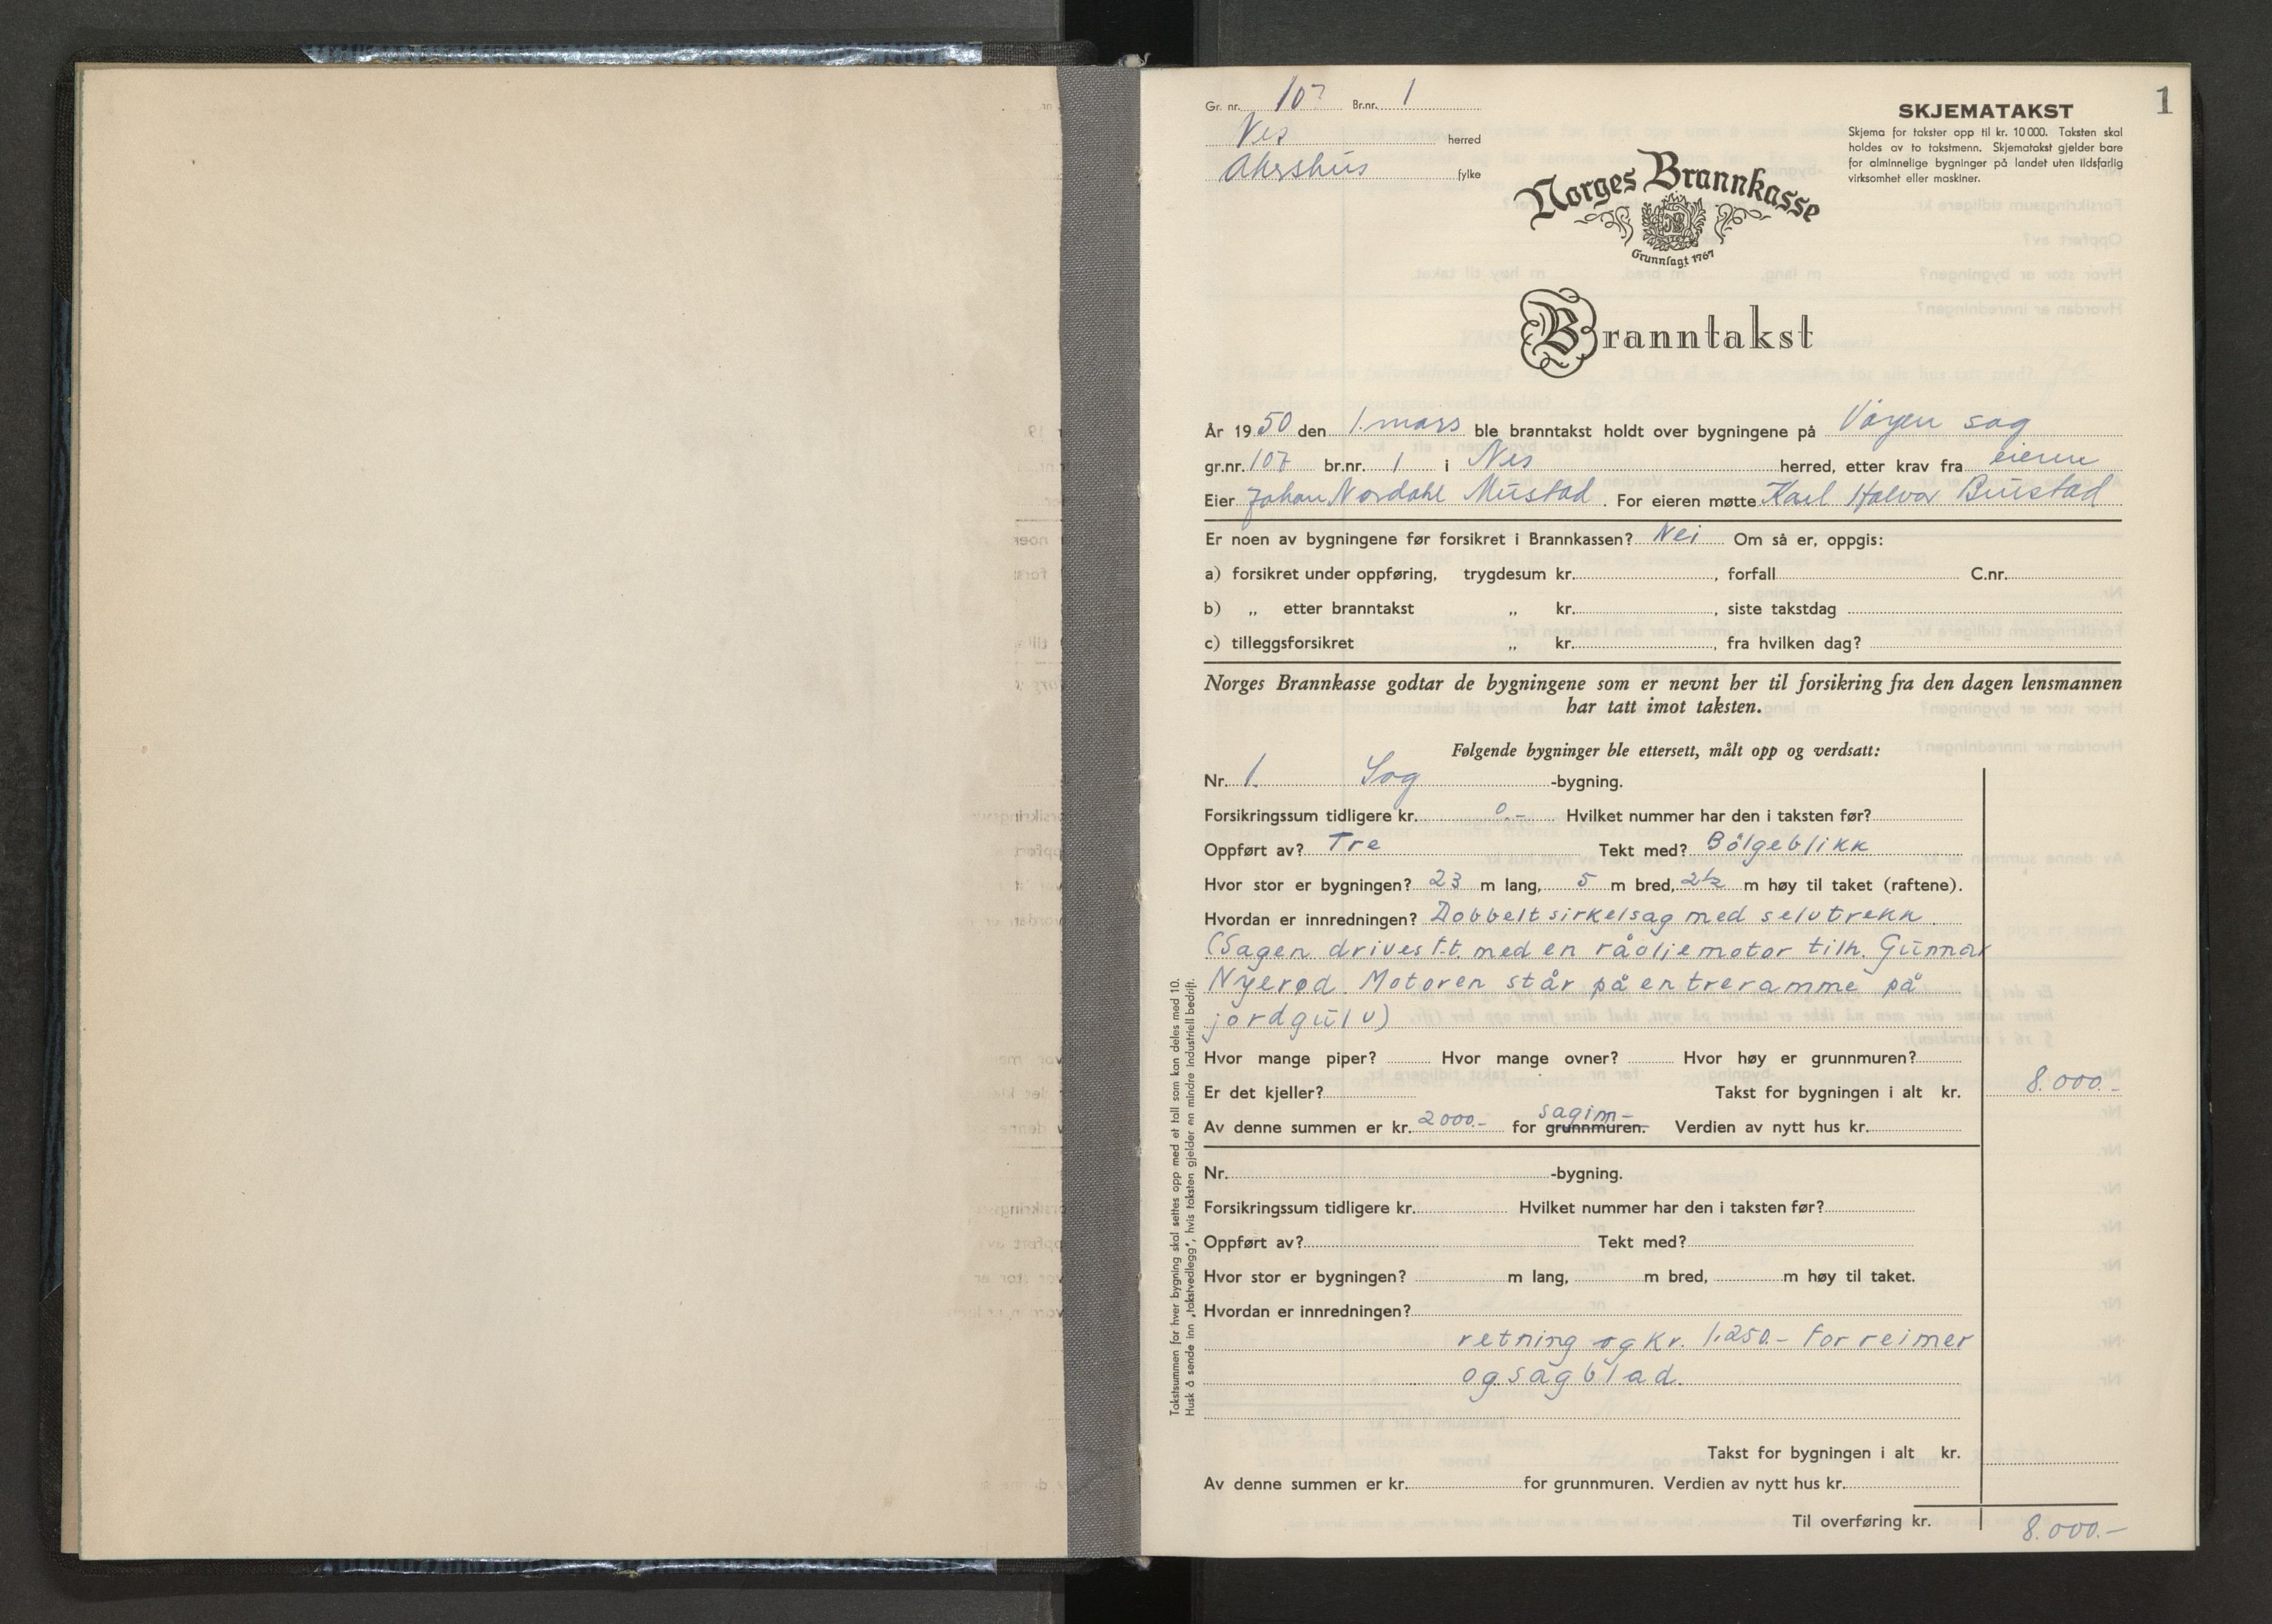 1
Gr. nr. 107 Br.nr. 1
Nes herred
Akershus fylke
SKJEMATAKST
Skjema for takster opp til kr. 10 000. Taksten skal
holdes av to takstmenn. Skjematakst gjelder bare
for alminnelige bygninger på landet uten ildsfarlig
virksomhet eller maskiner.
Norges Brannkasse
Grunnlagt 1767
Branntakst
År 1950 den 1. mars ble branntakst holdt over bygningene på Vågen sag
gr.nr. 107 br.nr. 1 i Nes herred, etter krav fra eieren
Eier Johan Nordahl Mustad. For eieren møtte Karl Halvor Bustad
Er noen av bygningene før forsikret i Brannkassen? Nei Om så er, oppgis:
a) forsikret under oppføring, trygdesum kr. , forfall C.nr.
b) „ etter branntakst „ kr. , siste takstdag
c) tilleggsforsikret „ kr. , fra hvilken dag?
Norges Brannkasse godtar de bygningene som er nevnt her til forsikring fra den dagen lensmannen
har tatt imot taksten.
Følgende bygninger ble ettersett, målt opp og verdsatt:
Nr. 1. Sag -bygning.
Forsikringssum tidligere kr. 0.- Hvilket nummer har den i taksten før?
Oppført av? Tre Tekt med? Bølgeblikk
Hvor stor er bygningen? 23 m lang, 5 m bred, 2½ m høy til taket (raftene).
Hvordan er innredningen? Dobbelt sirkelsag med selvtrekk.
(Sagen drives f.t. med en råoljemotor tilh. Gunnar
Nyerød. Motoren står på en treramme på
jordgulv)
Hvor mange piper? Hvor mange ovner? Hvor høy er grunnmuren?
Er det kjeller? Takst for bygningen i alt kr. 8.000.-
Av denne summen er kr. 2000.- for grunnmuren. sagim- Verdien av nytt hus kr.
Nr. -bygning.
Forsikringssum tidligere kr. Hvilket nummer har den i taksten før?
Oppført av? Tekt med?
Hvor stor er bygningen? m lang, m bred, m høy til taket.
Hvordan er innredningen?
retning og kr. 1.250.- for reimer
og sagblad.
Takst for bygningen i alt kr.
Av denne summen er kr. for grunnmuren. Verdien av nytt hus kr.
Til overføring kr. 8.000.-
Takstsummen for hver bygning skal settes opp med et tall som kan deles med 10.
Husk å sende inn „takstvedlegg", hvis taksten gjelder en mindre industriell bedrift.